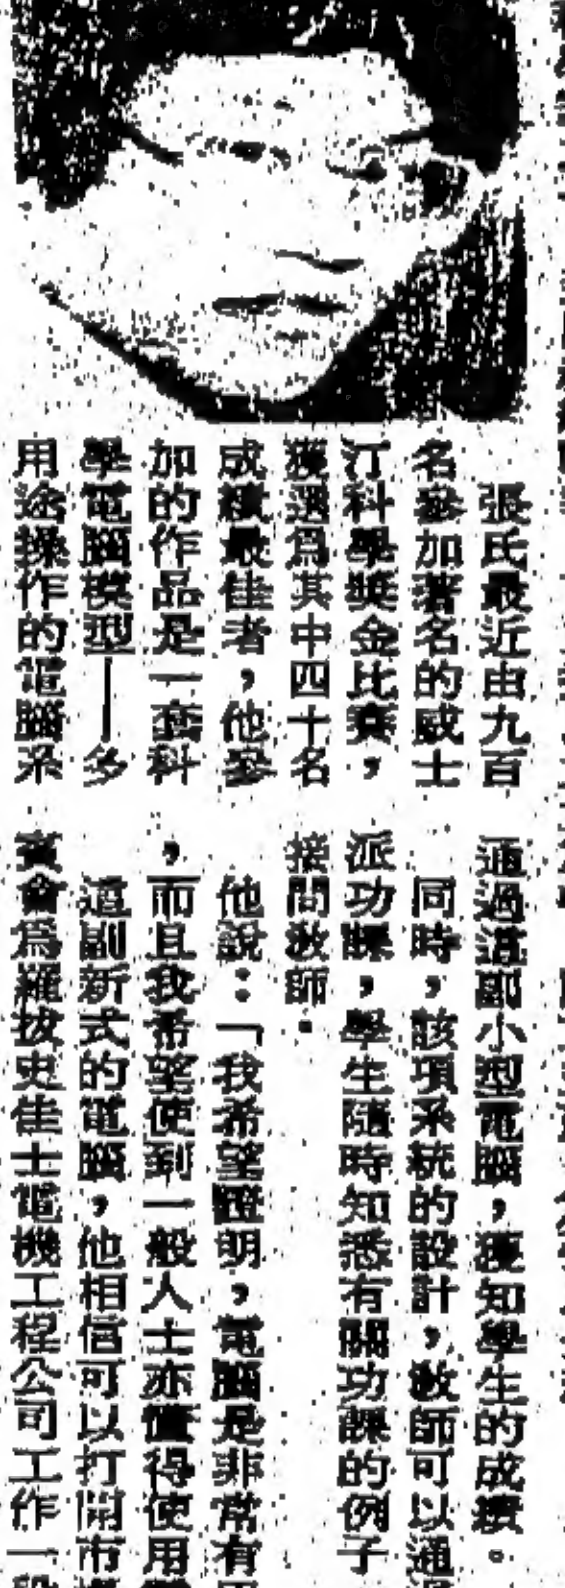 張氏最近由九百
名參加著名的威士
汀科學獎金比賽，
獲選爲其中四十名
成績最佳者，他參
加的作品是一套科
學電腦模型——多
用途操作的電腦系
通過這副小型電腦，獲知學生的成績。
同時，該項系統的設計，教師可以通
派功課，學生隨時知悉有關功課的例子
接問教師。
他說：「我希望證明，電腦是非常有
，而且我希望使到一般人士亦懂得使用
這副新式的電腦，他相信可以打開市
賓會爲羅拔史佳士電機工程公司工作一